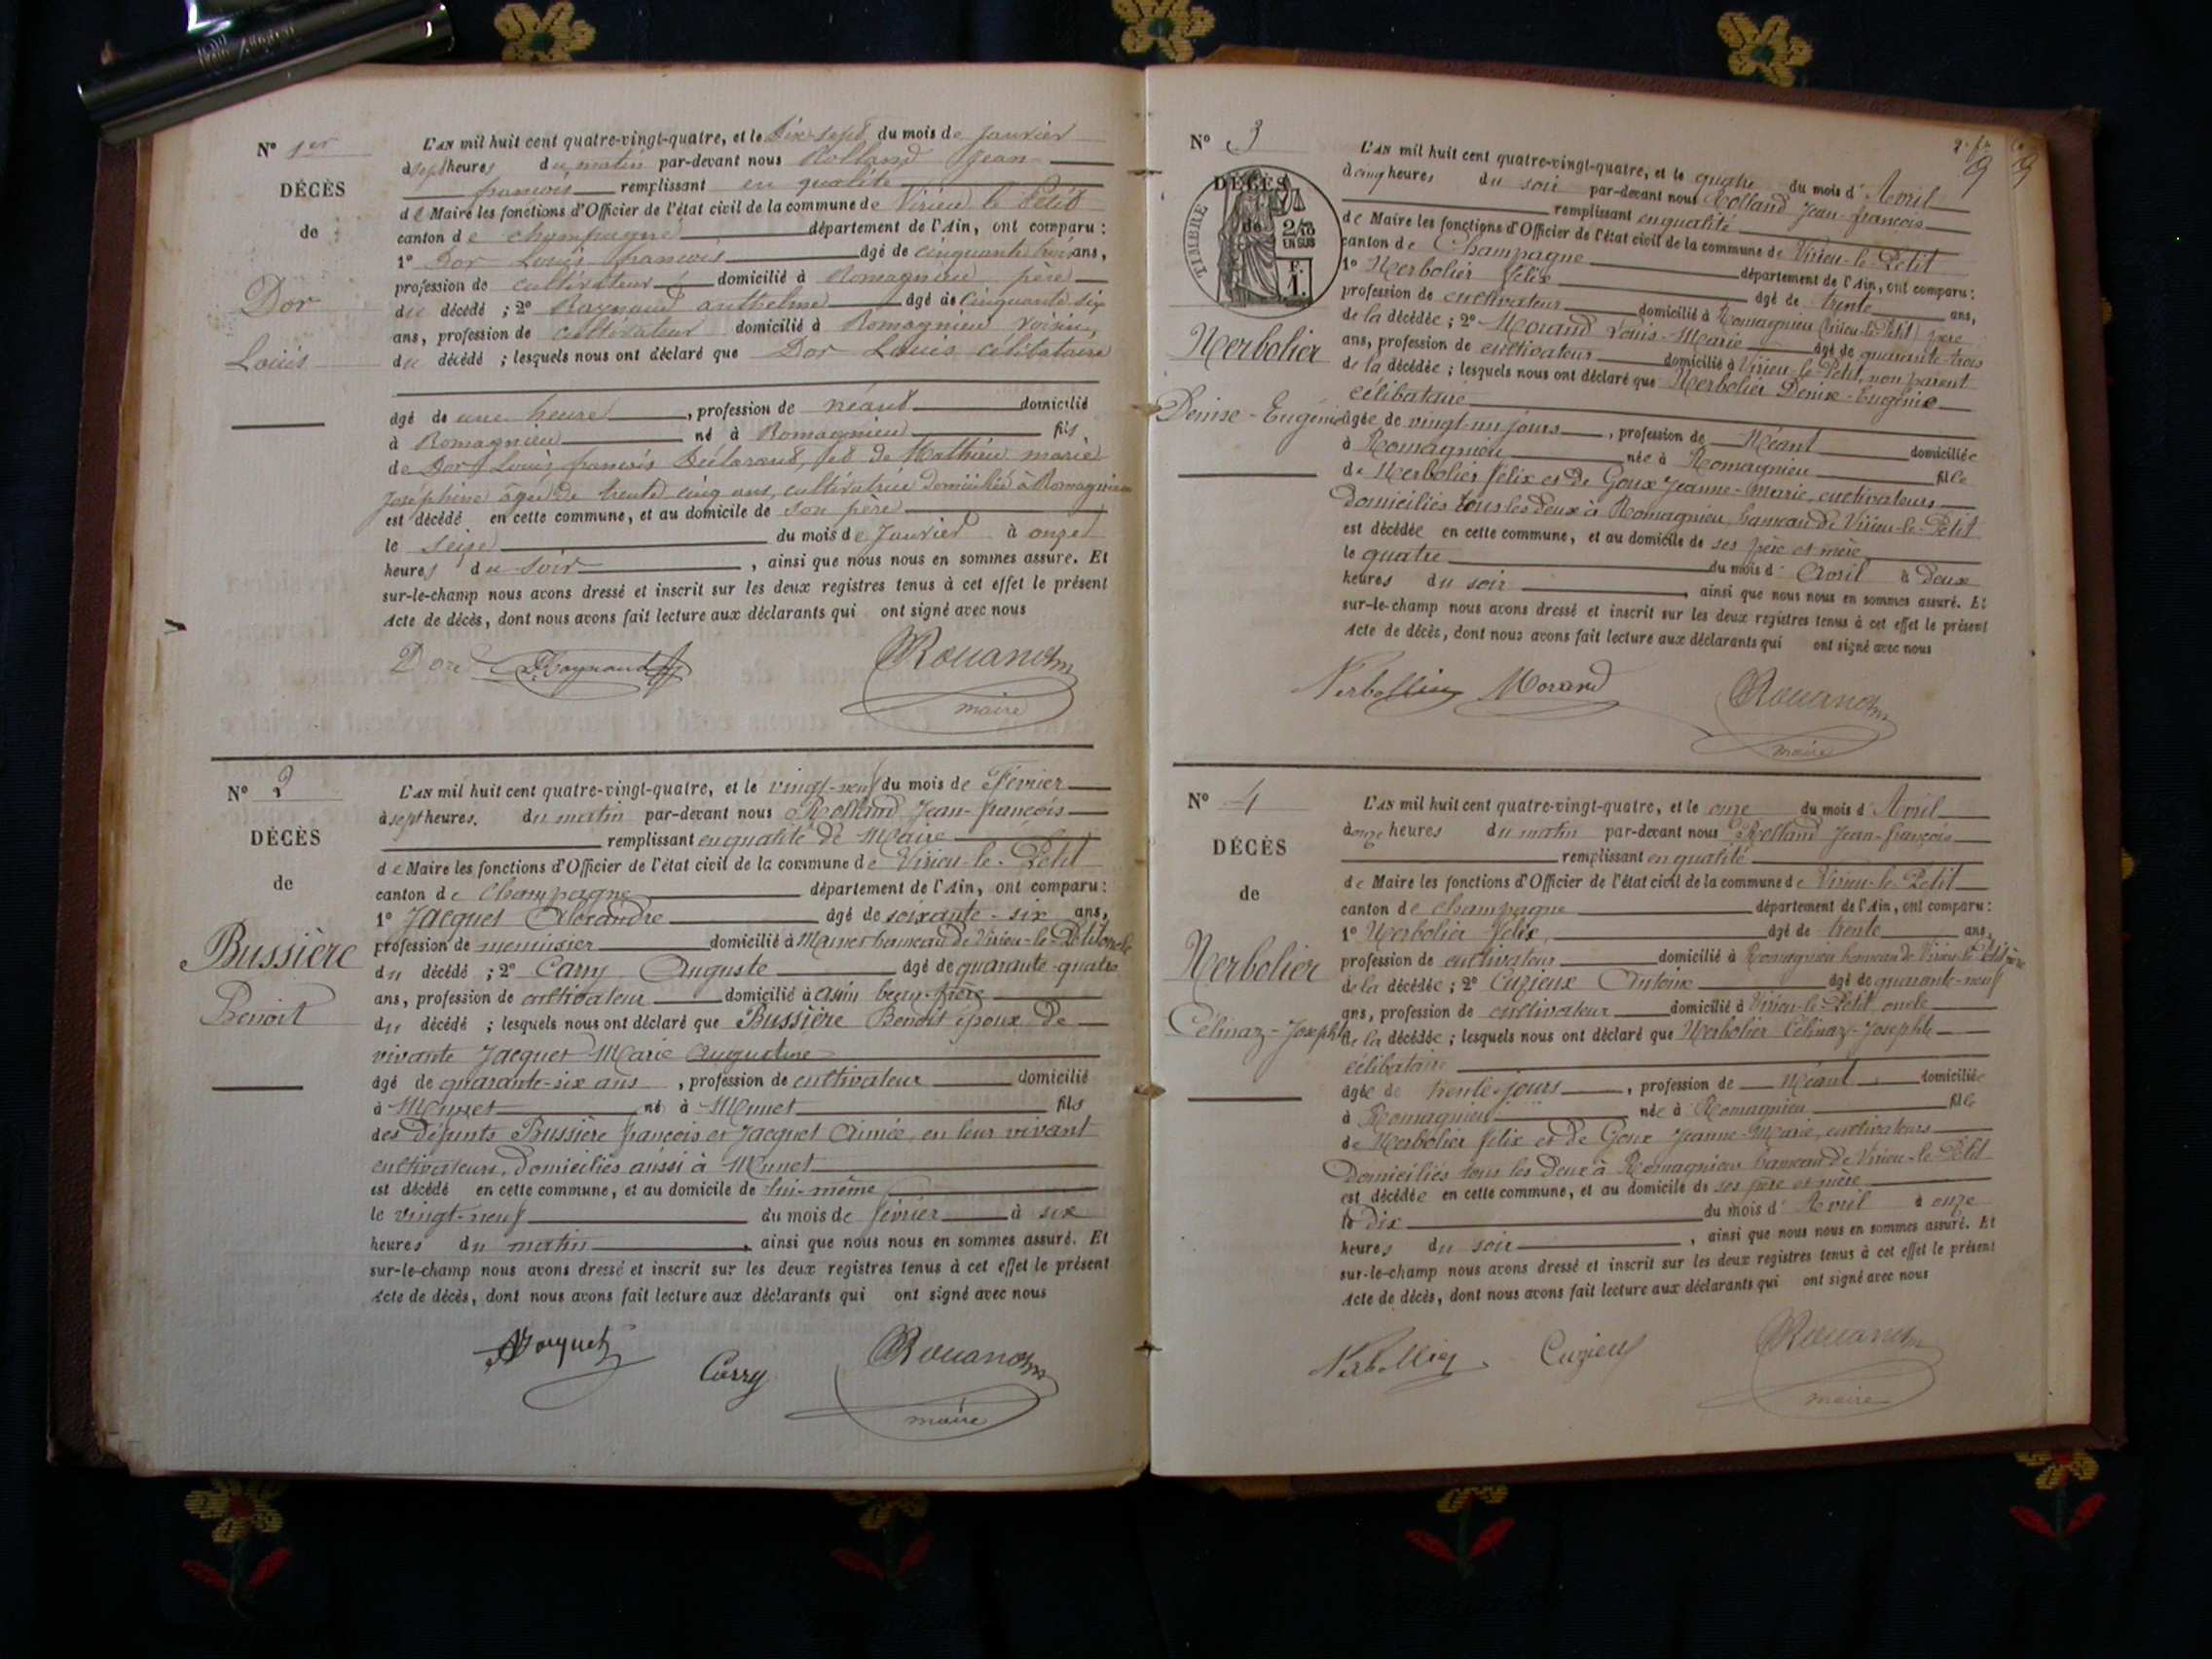 N° 1er
DÉCÈS
de
Dor
Louis
L'AN mil huit cent quatre-vingt-quatre, et le Dix-sept du mois de Janvier
à sept heures du matin par-devant nous Rolland Jean
françois remplissant en qualité
de Maire les fonctions d'Officier de l'état civil de la commune de Virieu le Petit
canton de champagne département de l'Ain, ont comparu :
1° Dor Louis françois âgé de cinquante trois ans,
profession de cultivateur domicilié à Romagnieu père
du décédé ; 2° Raynaud anthelme âgé de cinquante six
ans, profession de cultivateur domicilié à Romagnieu voisin,
du décédé ; lesquels nous ont déclaré que Dor Louis célibataire
âgé de une heure , profession de néant domicilié
à Romagnieu né à Romagnieu fils
de Dor Louis françois Déclarant, et de Mathieu marie
Joséphine âgée de trente cinq ans, cultivatrice domiciliée à Romagnieu
est décédé en cette commune, et au domicile de son père
le seize du mois de Janvier à onze
heures du soir , ainsi que nous nous en sommes assuré. Et
sur-le-champ nous avons dressé et inscrit sur les deux registres tenus à cet effet le présent
Acte de décès, dont nous avons fait lecture aux déclarants qui ont signé avec nous
Dor Raynaud
maire
N° 2
DÉCÈS
de
Bussière
Benoit
L'AN mil huit cent quatre-vingt-quatre, et le vingt-neuf du mois de Février
à sept heures. du matin par-devant nous Rolland Jean-françois
remplissant en qualité de Maire
de Maire les fonctions d'Officier de l'état civil de la commune de Virieu-le-Petit
canton de Champagne département de l'Ain, ont comparu :
1° Jacquet Alexandre âgé de soixante-six ans,
profession de menuisier domicilié à Munet hameau de Virieu-le-Petit oncle
du décédé ; 2° Carry Auguste âgé de quarante-quatre
ans, profession de cultivateur domicilié à Assin beau-frère
du décédé ; lesquels nous ont déclaré que Bussière Benoit époux de
vivante Jacquet Marie Augustine
âgé de quarante-six ans , profession de cultivateur domicilié
à Munet né à Munet fils
des défunts Bussière françois et Jacquet Aimée, en leur vivant
cultivateurs, domiciliés aussi à Munet
est décédé en cette commune, et au domicile de lui-même
le vingt-neuf du mois de février à six
heures du matin , ainsi que nous nous en sommes assuré. Et
sur-le-champ nous avons dressé et inscrit sur les deux registres tenus à cet effet le présent
Acte de décès, dont nous avons fait lecture aux déclarants qui ont signé avec nous
Jacquet
Carry
maire
N° 3
DÉCÈS
de
TIMBRE
2/10
EN SUS
F.
1.
Nerbolier
Denise-Eugénie
9
L'AN mil huit cent quatre-vingt-quatre, et le quatre du mois d'Avril
à cinq heures du soir par-devant nous Rolland Jean-françois
remplissant en qualité
de Maire les fonctions d'Officier de l'état civil de la commune de Virieu-le-Petit
canton de Champagne département de l'Ain, ont comparu :
1° Nerbolier félix âgé de trente ans,
profession de cultivateur domicilié à Romagnieu (Virieu-le-Petit) père
de la décédée ; 2° Morand Louis-Marie âgé de quarante-trois
ans, profession de cultivateur domicilié à Virieu-le-Petit, non parent
de la décédée ; lesquels nous ont déclaré que Nerbolier Denise-Eugénie
célibataire
âgée de vingt-un jours , profession de Néant domiciliée
à Romagnieu née à Romagnieu fille
de Nerbolier félix et de Goux Jeanne-Marie, cultivateurs
domiciliés tous les deux à Romagnieu, hameau de Virieu-le-Petit
est décédée en cette commune, et au domicile de ses père et mère
le quatre du mois d'Avril à deux
heures du soir , ainsi que nous nous en sommes assuré. Et
sur-le-champ nous avons dressé et inscrit sur les deux registres tenus à cet effet le présent
Acte de décès, dont nous avons fait lecture aux déclarants qui ont signé avec nous
Nerbollier Morand
maire
N° 4
DÉCÈS
de
Nerbolier
Célinaz-Josephte
L'AN mil huit cent quatre-vingt-quatre, et le onze du mois d'Avril
à onze heures du matin par-devant nous Rolland Jean-françois
remplissant en qualité
de Maire les fonctions d'Officier de l'état civil de la commune de Virieu-le-Petit
canton de champagne département de l'Ain, ont comparu :
1° Nerbolier félix, âgé de trente ans,
profession de cultivateur domicilié à Romagnieu hameau de Virieu-le-Petit père
de la décédée ; 2° Cuzieux Antoine âgé de quarante-neuf
ans, profession de cultivateur domicilié à Virieu-le-Petit, oncle
de la décédée ; lesquels nous ont déclaré que Nerbolier Célinaz-Josephte
célibataire
âgée de trente-jours , profession de Néant domiciliée
à Romagnieu née à Romagnieu fille
de Nerbolier félix et de Goux Jeanne-Marie, cultivateurs
Domiciliés tous les deux à Romagnieu hameau de Virieu-le-Petit
est décédée en cette commune, et au domicile de ses père et mère
le dix du mois d'Avril à onze
heures du soir , ainsi que nous nous en sommes assuré. Et
sur-le-champ nous avons dressé et inscrit sur les deux registres tenus à cet effet le présent
Acte de décès, dont nous avons fait lecture aux déclarants qui ont signé avec nous
Nerbollier Cuzieux
maire